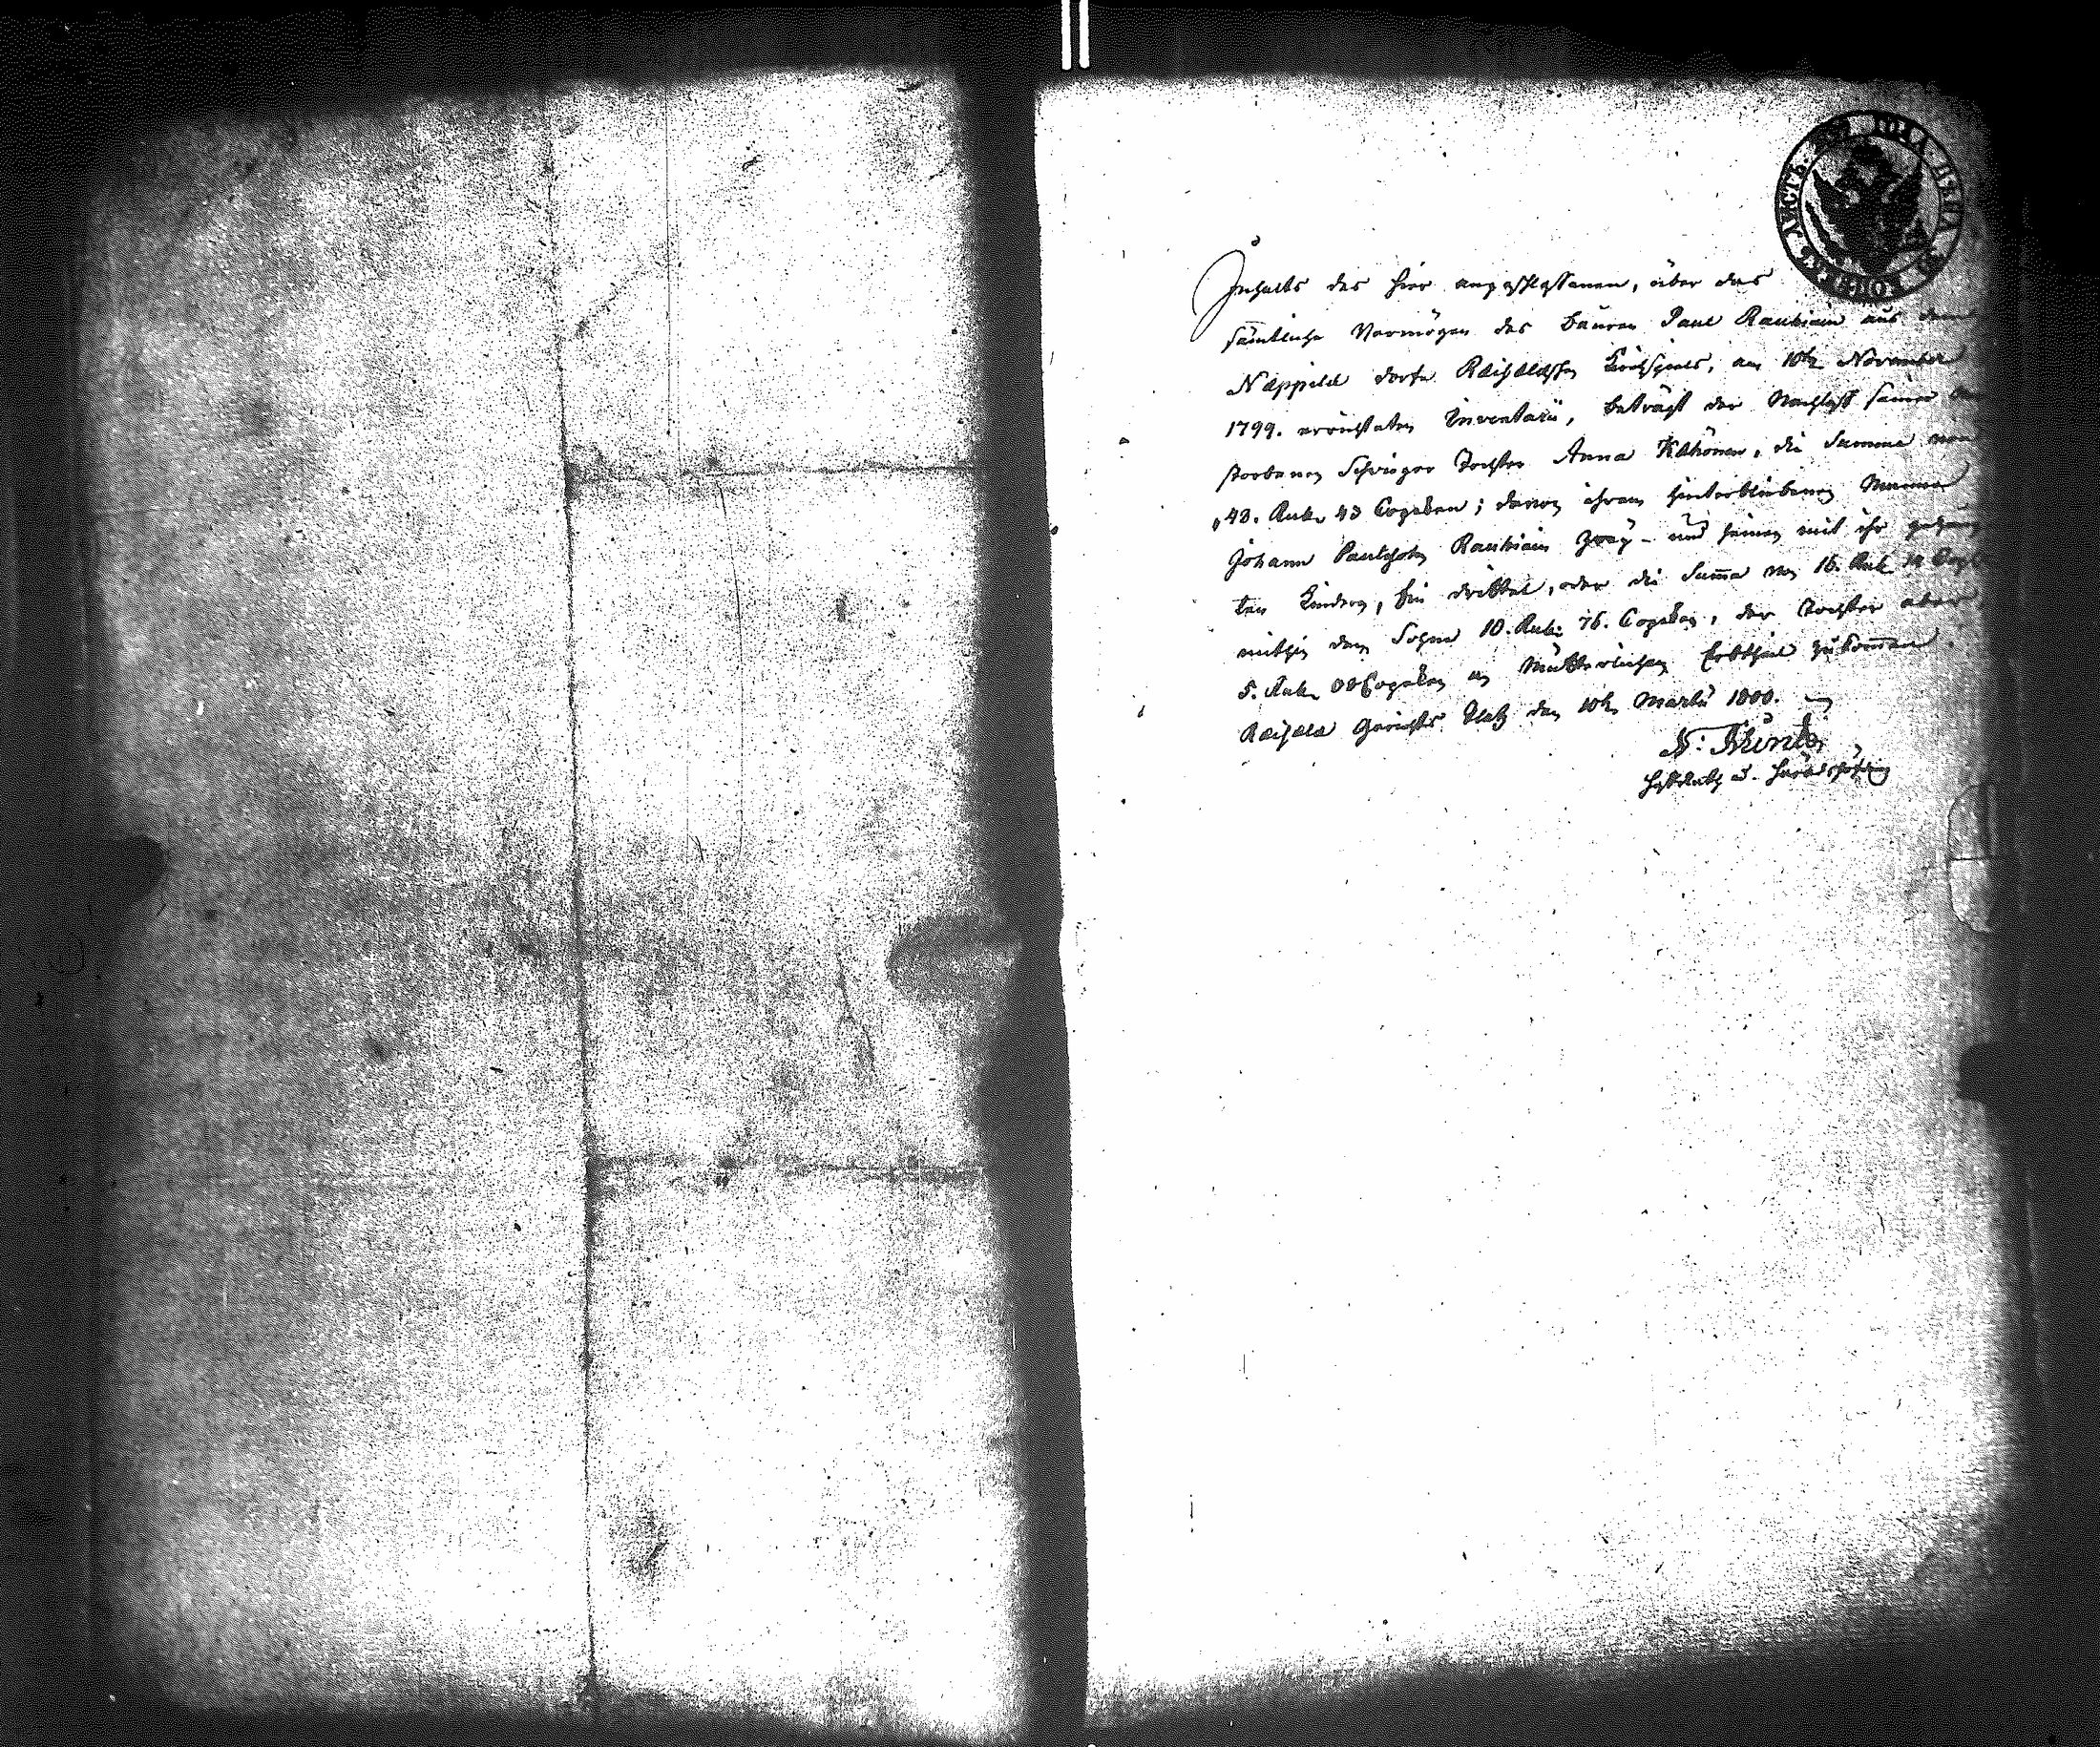 Inhalts des hier angeschlossenen, über das
sämtliche Vermögen des Bauren Paul Rautiain aus dem
Næppilä dorfe Räisäläschen Kirchspiels, am 10ten November
1799. errichteten Inventarii, beträgt der Nachlaß seiner
storbenen Schwieger Tochter Anna Kähönen, die Summa von
48. Rub. 43 Copeken; davon ihrem hinterbliebenen Manne
Johann Paulsohn Rautiain zwey- und seinen mit ihr gezeug
ten Kindern, Ein drittel, oder die Sum̅a von 16. Rub. 14 Cop
mithin dem Sohne 10. Rub. 76. Copeken, der Tochter aber
5. Rub. 38 Copeken an Mütterlichen Erbtheil zukom̅en.
Räisälä Gerichts Platz den 10ten Martii 1800.
ЛИСТЪ ГОДА ЦѢНА КОПѢЕКЪ